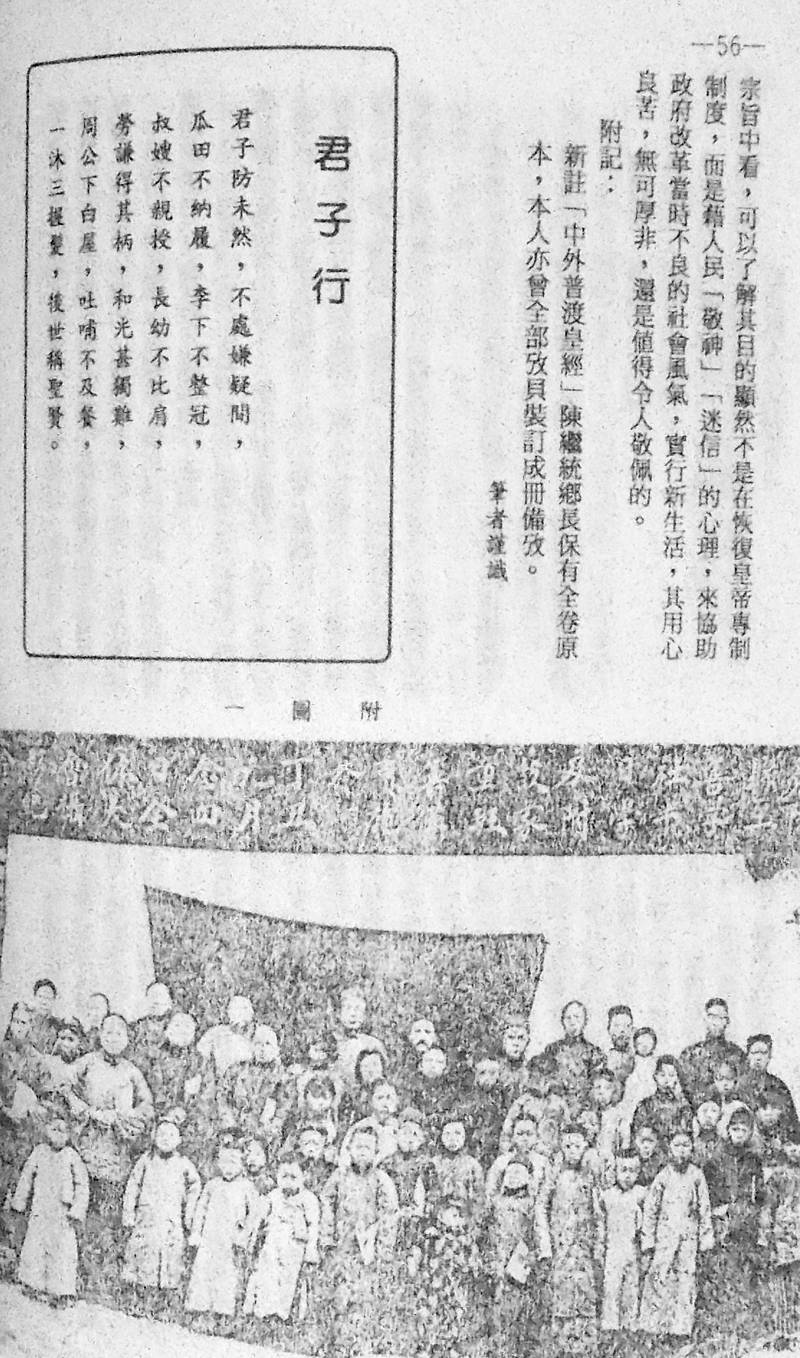 —56—
宗旨中看，可以了解其目的顯然不是在恢復皇帝專制
制度，而是藉人民「敬神」「迷信」的心理，來協助
政府改革當時不良的社會風氣，實行新生活，其用心
良苦，無可厚非，還是値得令人敬佩的。
附記：
新註「中外普渡皇經」陳繼統鄉長保有全卷原
本，本人亦曾全部攷貝裝訂成冊備攷。
筆者謹識
君子行
君子防未然，不處嫌疑間，
瓜田不納履，李下不整冠，
叔嫂不親授，長幼不比肩，
勞謙得其柄，和光甚獨難，
周公下白屋，吐哺不及餐，
一沐三握髮，後世稱聖賢。
附圖一
丁丑
九月
念四
日全